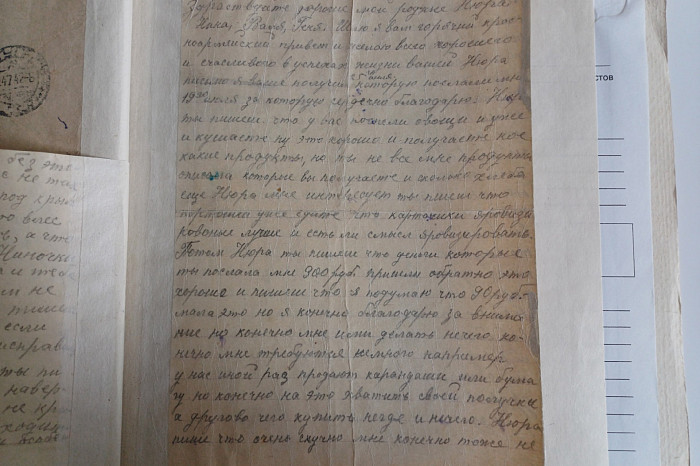 Здраствуте дорогие мои родные Нюра
Рая, Геня! Шлю я вам горячий крас-
ноармейский привет и желаю всего хорошего
и счастливого в успехах жизни вашей Нюра
письмо я ваше получил которую послали мне
19 июля за которую сердечно благодарю. Нюра
ты пишеш что у вас овощи и уже
и кушаете ну это хорошо и получаете кое
какие продукты, но ты не все мне продукты
описала которые вы получаете и сколько хлеба
еще Нюра мне интересует ты пишеш что
картошки уже едите что картошки яровизи
рованые лучше и есть ли смысл яровизировать
Потом Нюра ты пишеш что деньги которые
ты послала мне 900 руб пришли обратно это
хорошо и пишеш что я подумаю что 90 руб
мала это но я конечно благодарю за внима-
ние но конечно мне ими делать нечего ко-
нечно мне требуются немного например
у нас иной раз продают карандаши или бума
гу но конечно на это хватить своей получки
а другово чего купить негде и нечего. Нюра
пише что очень скучно мне конечно тоже не
без
не та
под
Ниночки
и тебе
м не
пиши
если
исправ
ты пи
навер-
не
и
47
стов